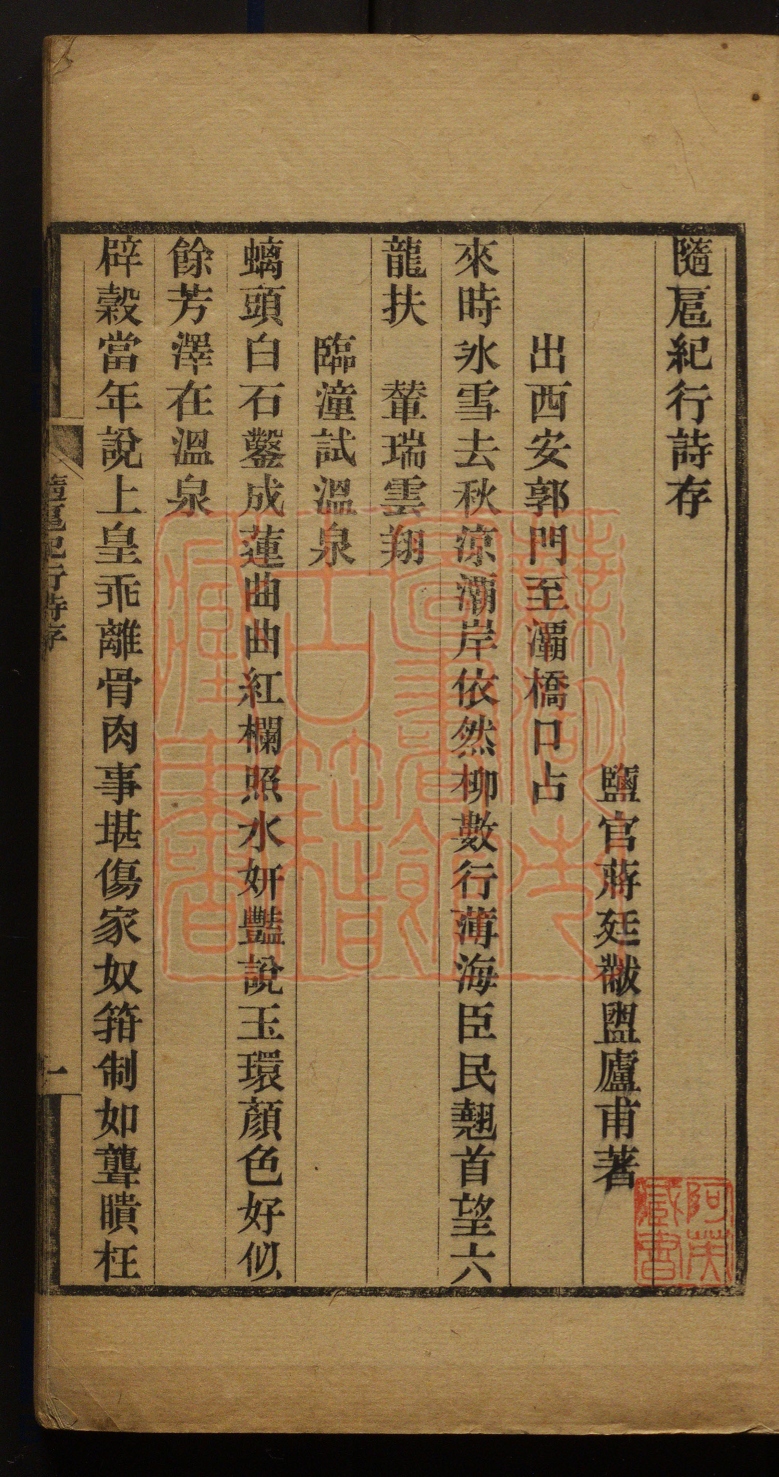 隨扈紀行詩存
鹽官蔣廷黻盥廬甫著
出西安郭門至灞橋口占
來時氷雪去秋涼灞岸依然柳數行薄海臣民翹首望六
龍扶　輦瑞雲翔
臨潼試溫泉
螭頭白石鑿成蓮曲曲紅欄照水妍豔說玉環顏色好似
餘芳澤在溫泉
辟穀當年說上皇乖離骨肉事堪傷家奴箝制如聾聵枉
隨扈紀行詩存
一